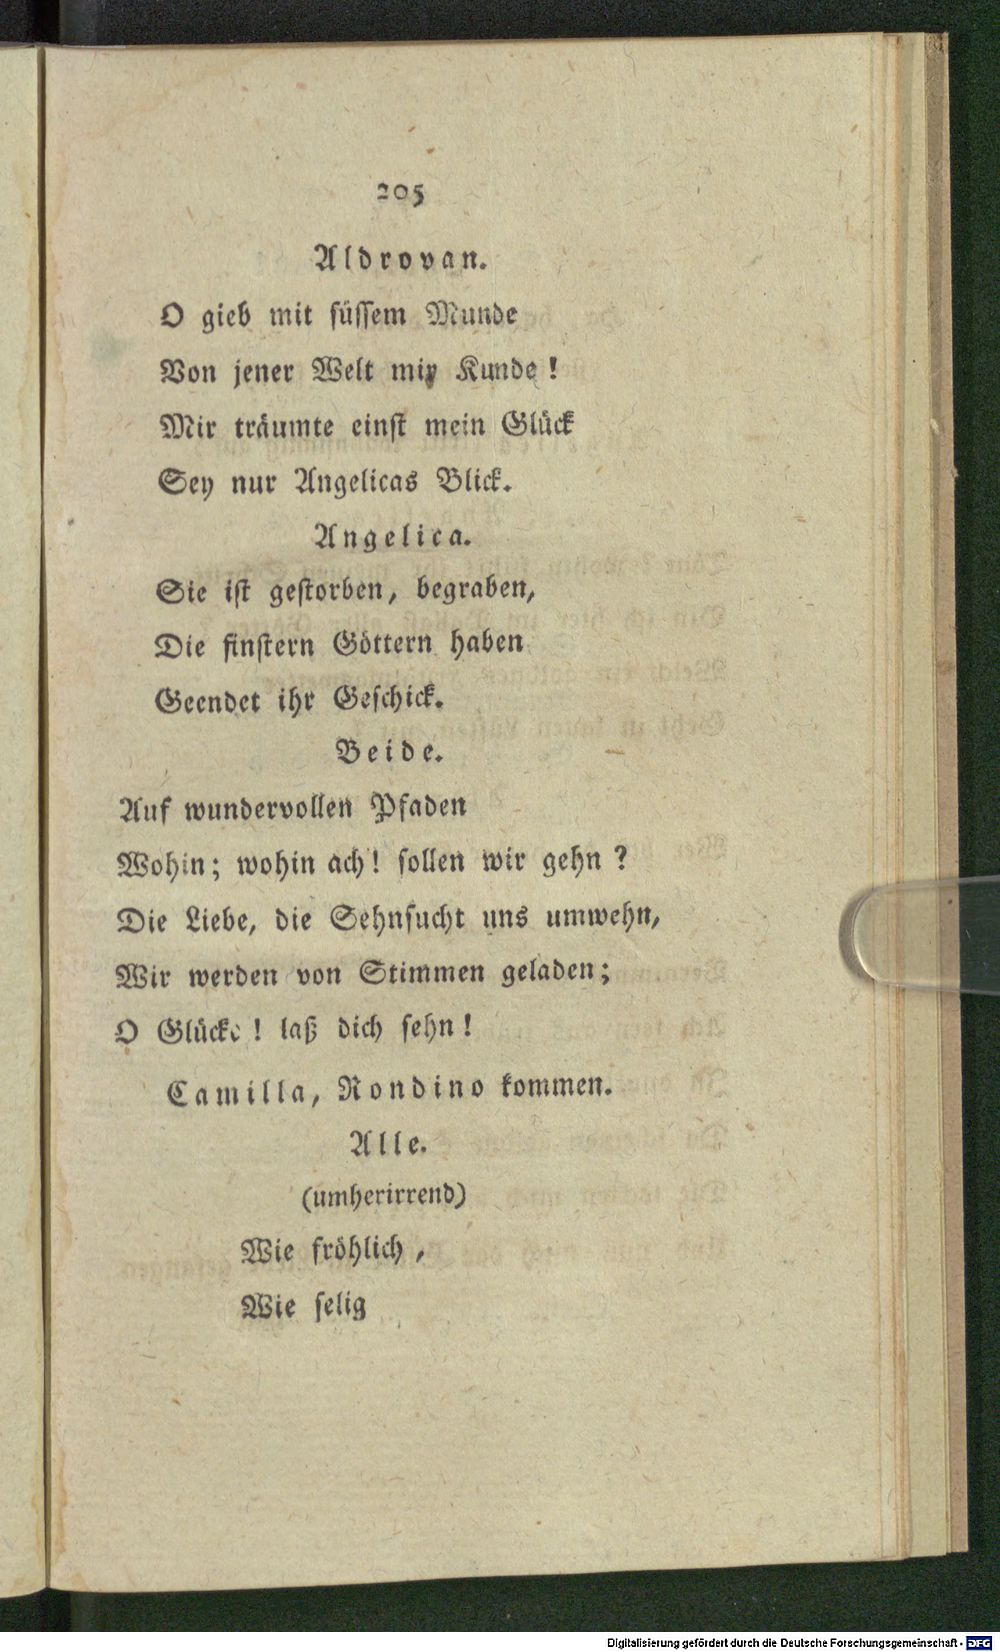 205
Aldrovan.
O gieb mit süssem Munde
Von jener Welt mir Kunde!
Mir träumte einst mein Glück
Sey nur Angelicas Blick.
Angelica.
Sie ist gestorben, begraben,
Die finstern Göttern haben
Geendet ihr Geschick.
Beide.
Auf wundervollen Pfaden
Wohin; wohin ach! sollen wir gehn?
Die Liebe, die Sehnsucht uns umwehn,
Wir werden von Stimmen geladen;
O Glücke! laß dich sehn!
Camilla, Rondino kommen.
Alle.
(umherirrend)
Wie fröhlich,
Wie selig
Digitalisierung gefördert durch die Deutsche Forschungsgemeinschaft - DFG